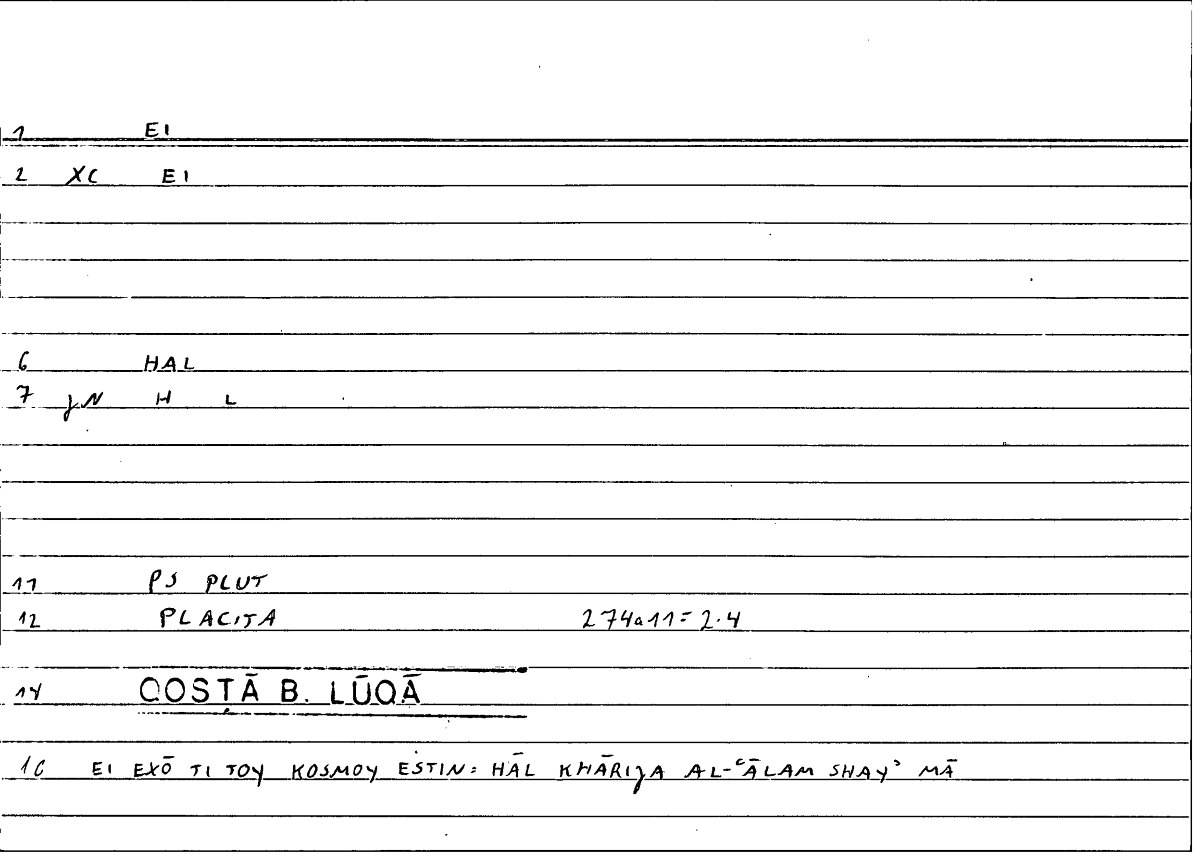 1 EI
2 XC EI
6 HAL
7 JN H L
11 PS PLUT
12 PLACITA 274a11=2.4
14 QOSṬĀ B. LŪQĀ
16 EI EXŌ TI TOY KOSMOY ESTIN: HAL KHĀRIJA AL-ʿĀLAM SHAYʾ MĀ